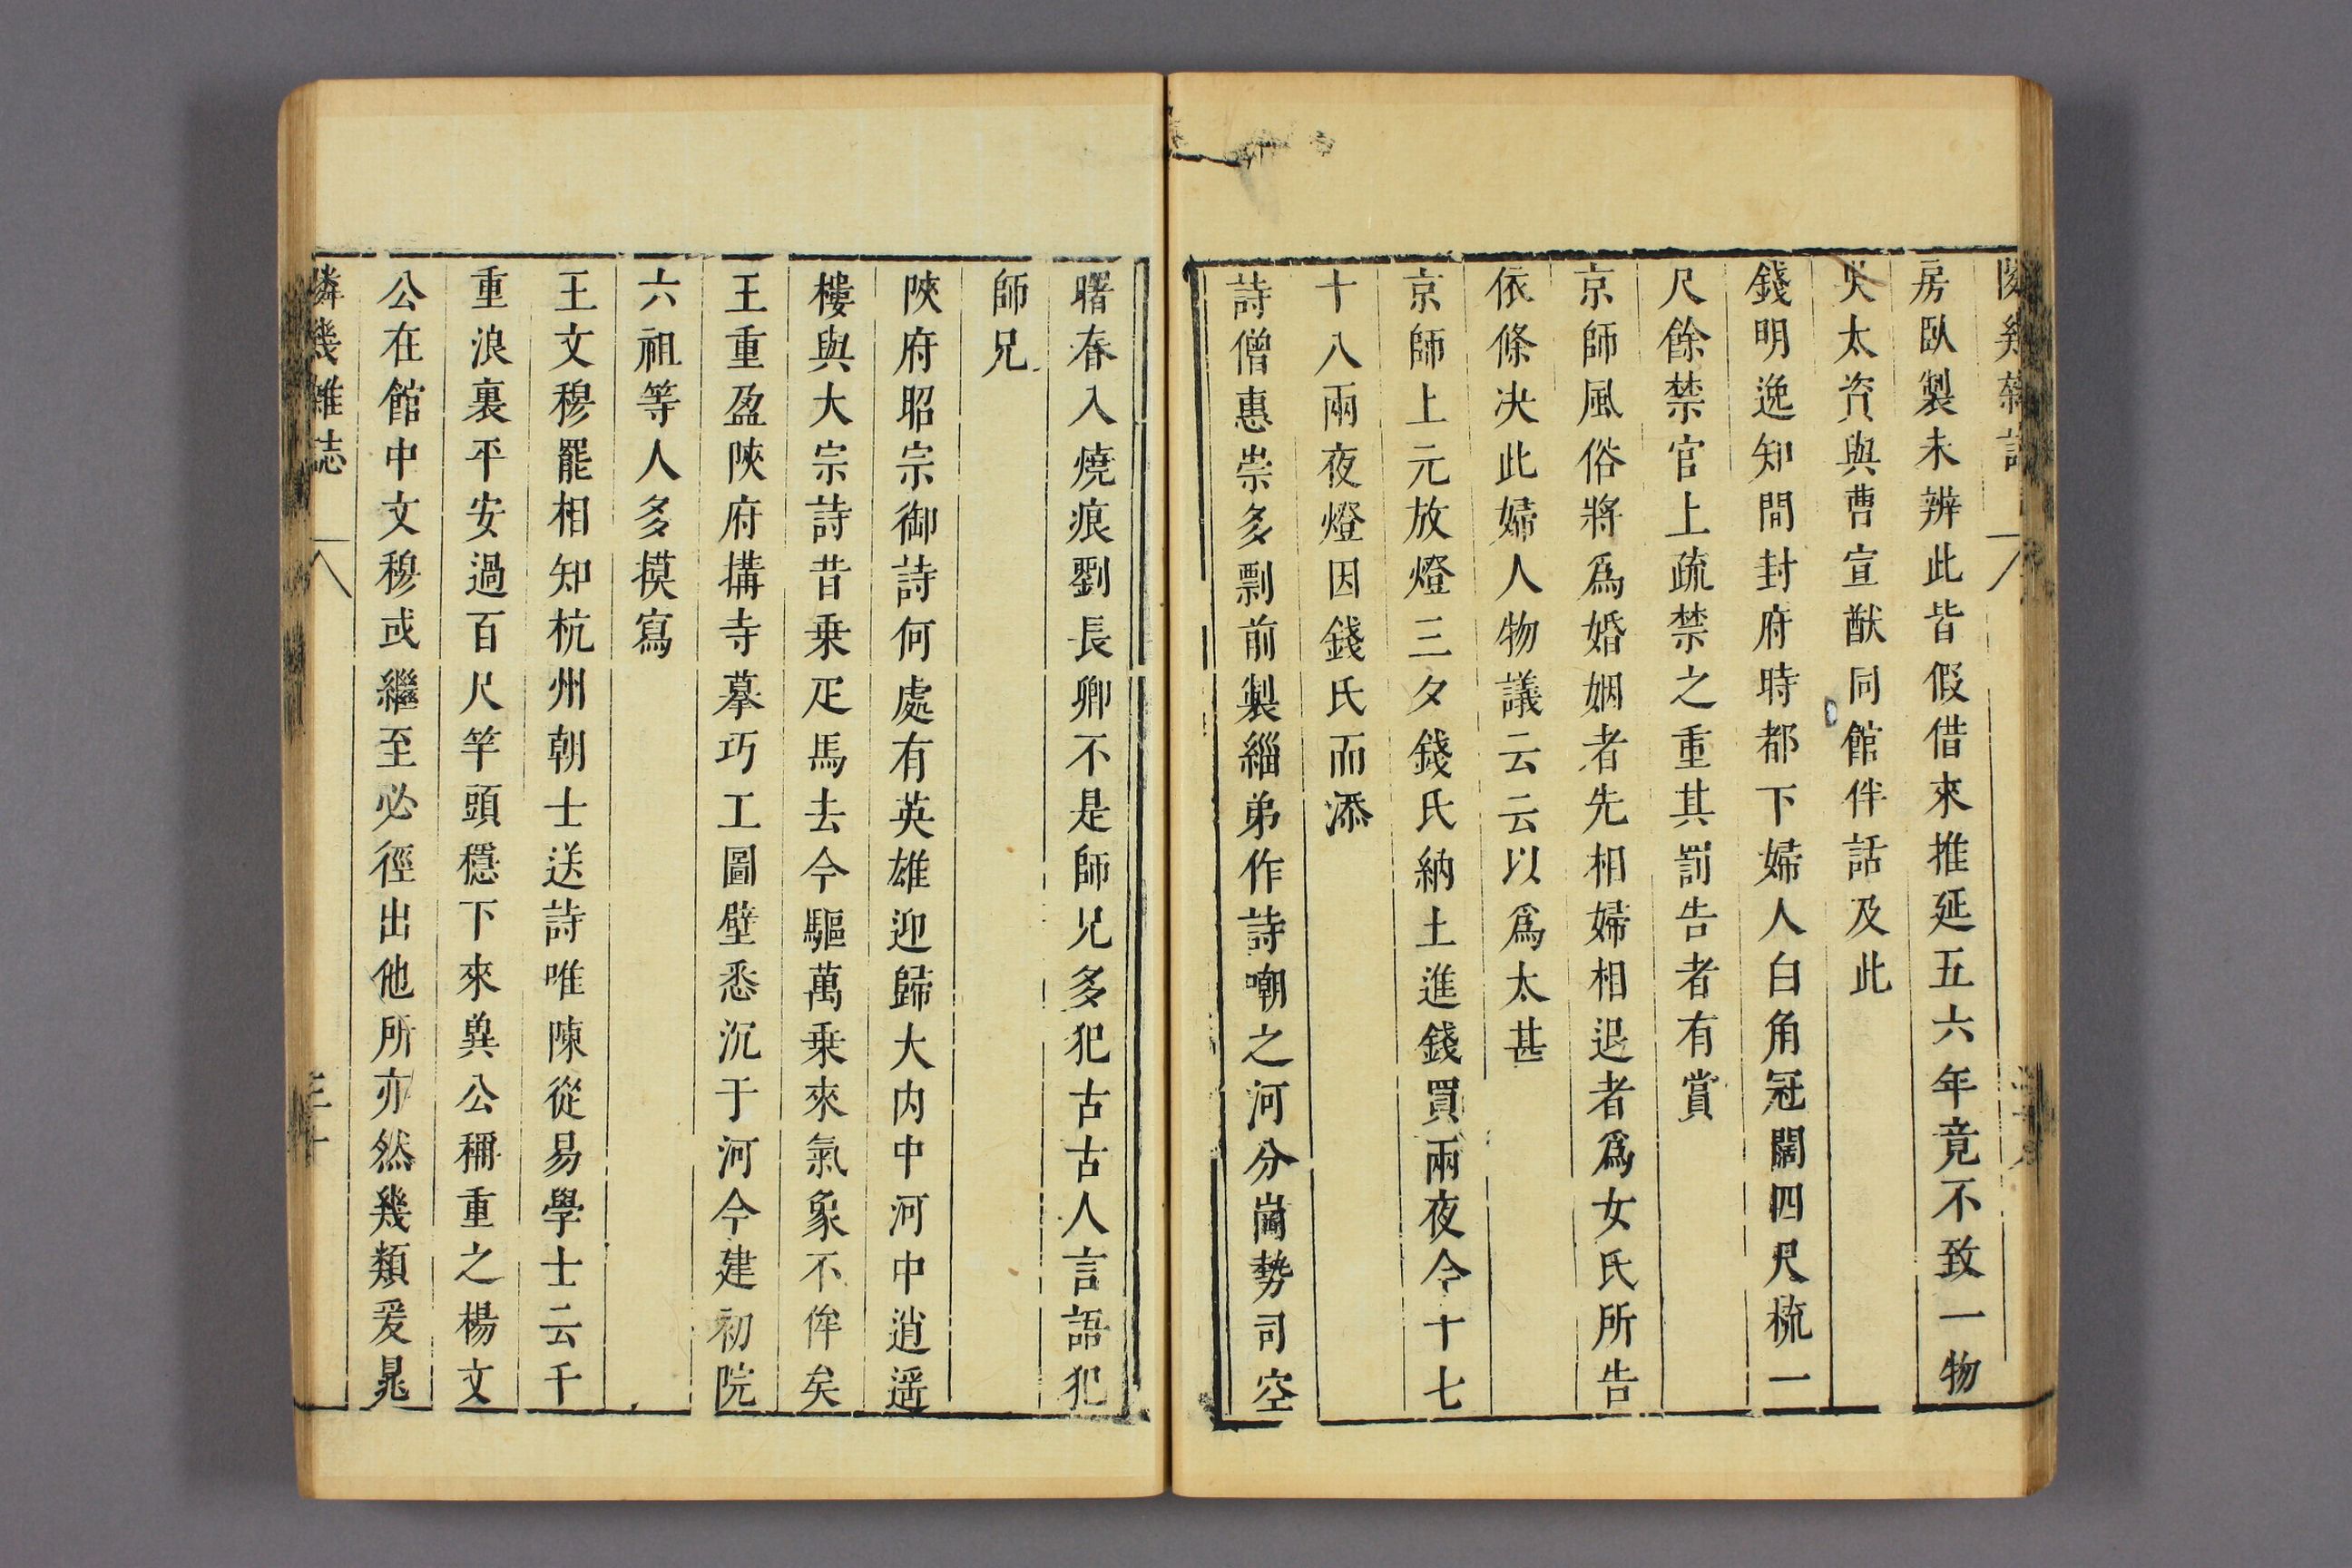 房臥製未辨此皆假借來推延五六年竟不致一物
吳太資與曹宣猷同館伴話及此
錢明逸知開封府時都下婦人白角冠闊四尺梳一
尺餘禁官上疏禁之重其罰告者有賞
京師風俗將爲婚姻者先相婦相退者爲女氏所告
依條决此婦人物議云云以爲太甚
京師上元放燈三夕錢氏納土進錢買兩夜今十七
十八兩夜燈因錢氏而添
詩僧惠崇多剽前製緇弟作詩嘲之河分崗勢司空
曙春入燒痕劉長卿不是師兄多犯古古人言語犯
師兄
陝府昭宗御詩何處有英雄迎歸大内中河中逍遥
樓與大宗詩昔乗疋馬去今驅萬乗來氣象不侔矣
王重盈陝府搆寺摹巧工圖壁悉沉于河今建初院
六祖等人多摸寫
王文穆罷相知杭州朝士送詩唯陳從易學士云千
重浪裏平安過百尺竿頭穩下來兾公稱重之楊文
公在館中文穆或繼至必徑出他所亦然幾類爰晁
隣幾雜誌